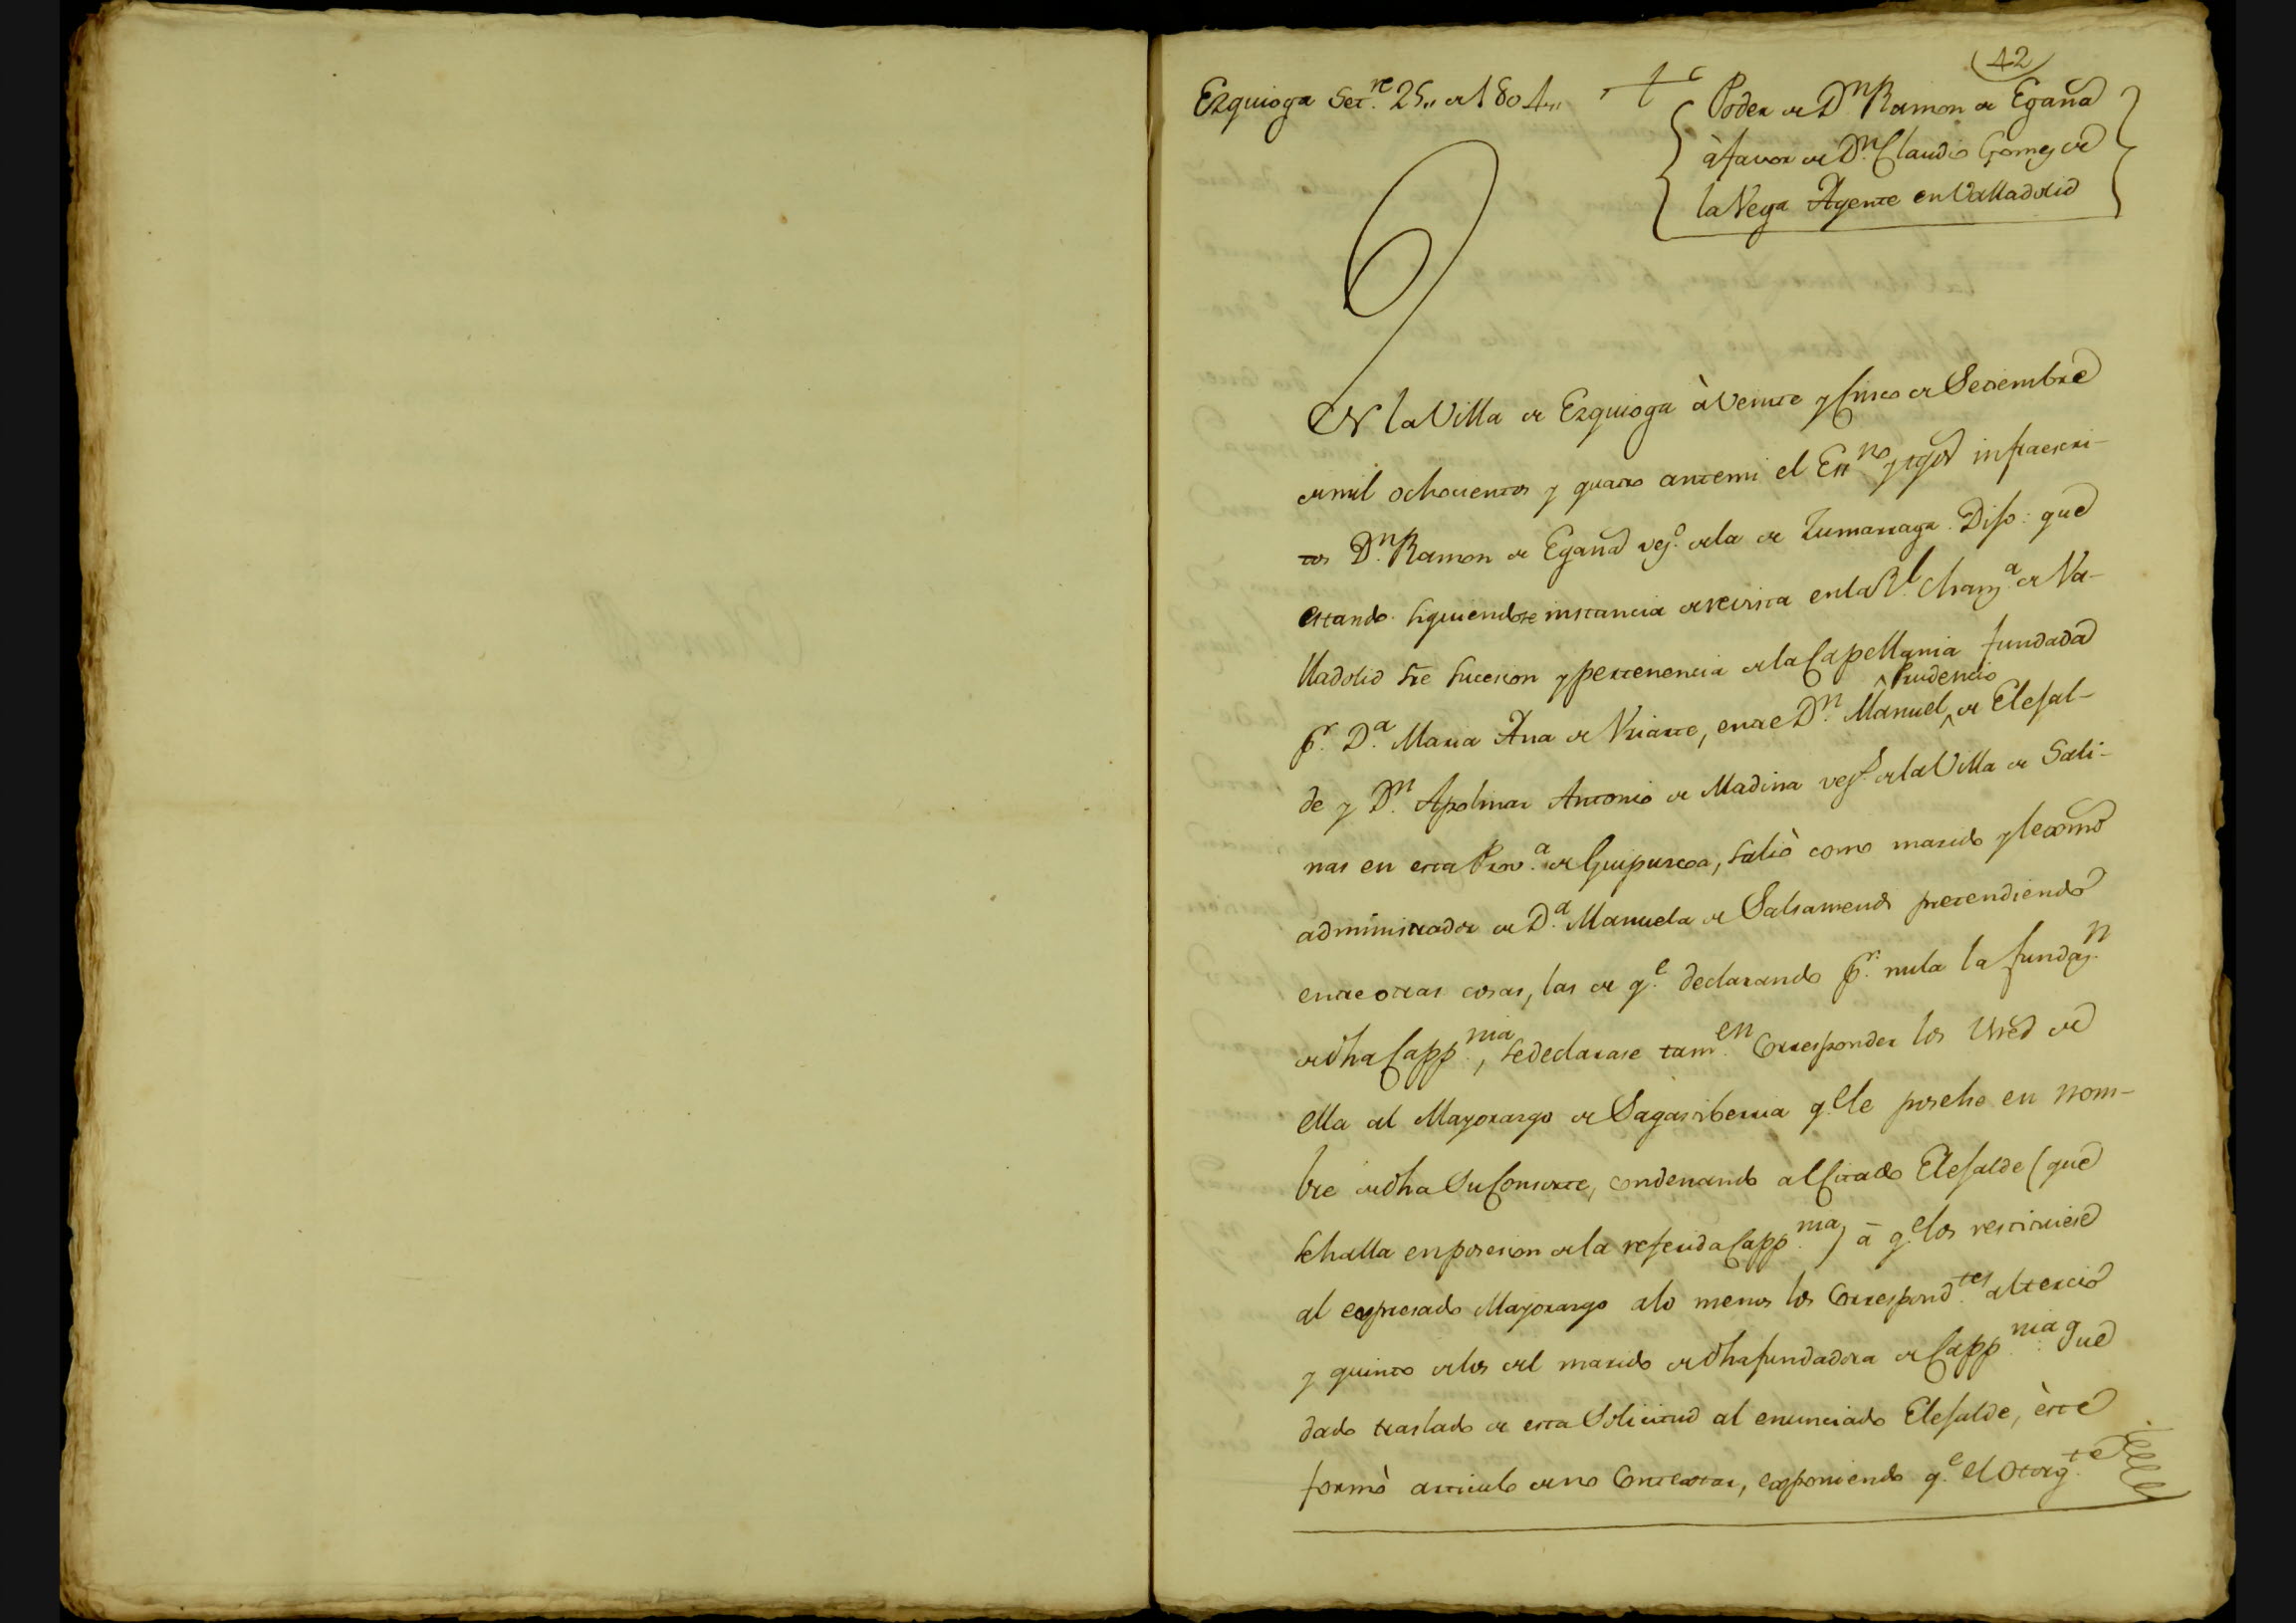 42
Ezquioga Set.re 25,, de 1804,,
Poder de D.n Ramon de Egaña
à favor de D.n Claudio Gomez de
la Vega Agente en Valladolid
En la Villa de Ezquioga à Veinte y Cinco de Setiembre
de mil ochocientos y quatro antemi el Ess.no y tgos infraescri-
tos D.n Ramon de Egaña vez.o dela de Zumarraga. Dijo: que
estando siguiendose instancia de revista enla R.l Chanz.a de Va-
lladolid sre succesion y pertenencia dela Capellania fundada
p.r D.a Maria Ana de Uriarte, entre D.n Manuel ^Prudencio de Elejal-
de y D.n Apolinar Antonio de Madina vez.s dela Villa de Sali-
nas en esta Prov.a de Guipuzcoa, saliò como marido y lexitimo
administrador de D.a Manuela de Salsamendi pretendiendo
entre otras cosas, las de q.e declarando p.r nula la fundaz.n
de dha Capp.nia, sedeclarase tam.en Corresponder los Vnes de
ella al Mayorazgo de Sagastiberria q.e le posehe en nom-
bre de dha Su Consorte, condenando al Citado Elejalde (que
sehalla en posesion dela referida Capp.nia) à q.e los restituiese
al expresado Mayorazgo alo menos los Correspond.tes al tercio
y quinto delos del marido de dha fundadora de Capp.nia: que
dado traslado de esta Solicitud al enunciado Elejalde, èste
formò articulo de no Contextar, exponiendo q.e el Otorg.te